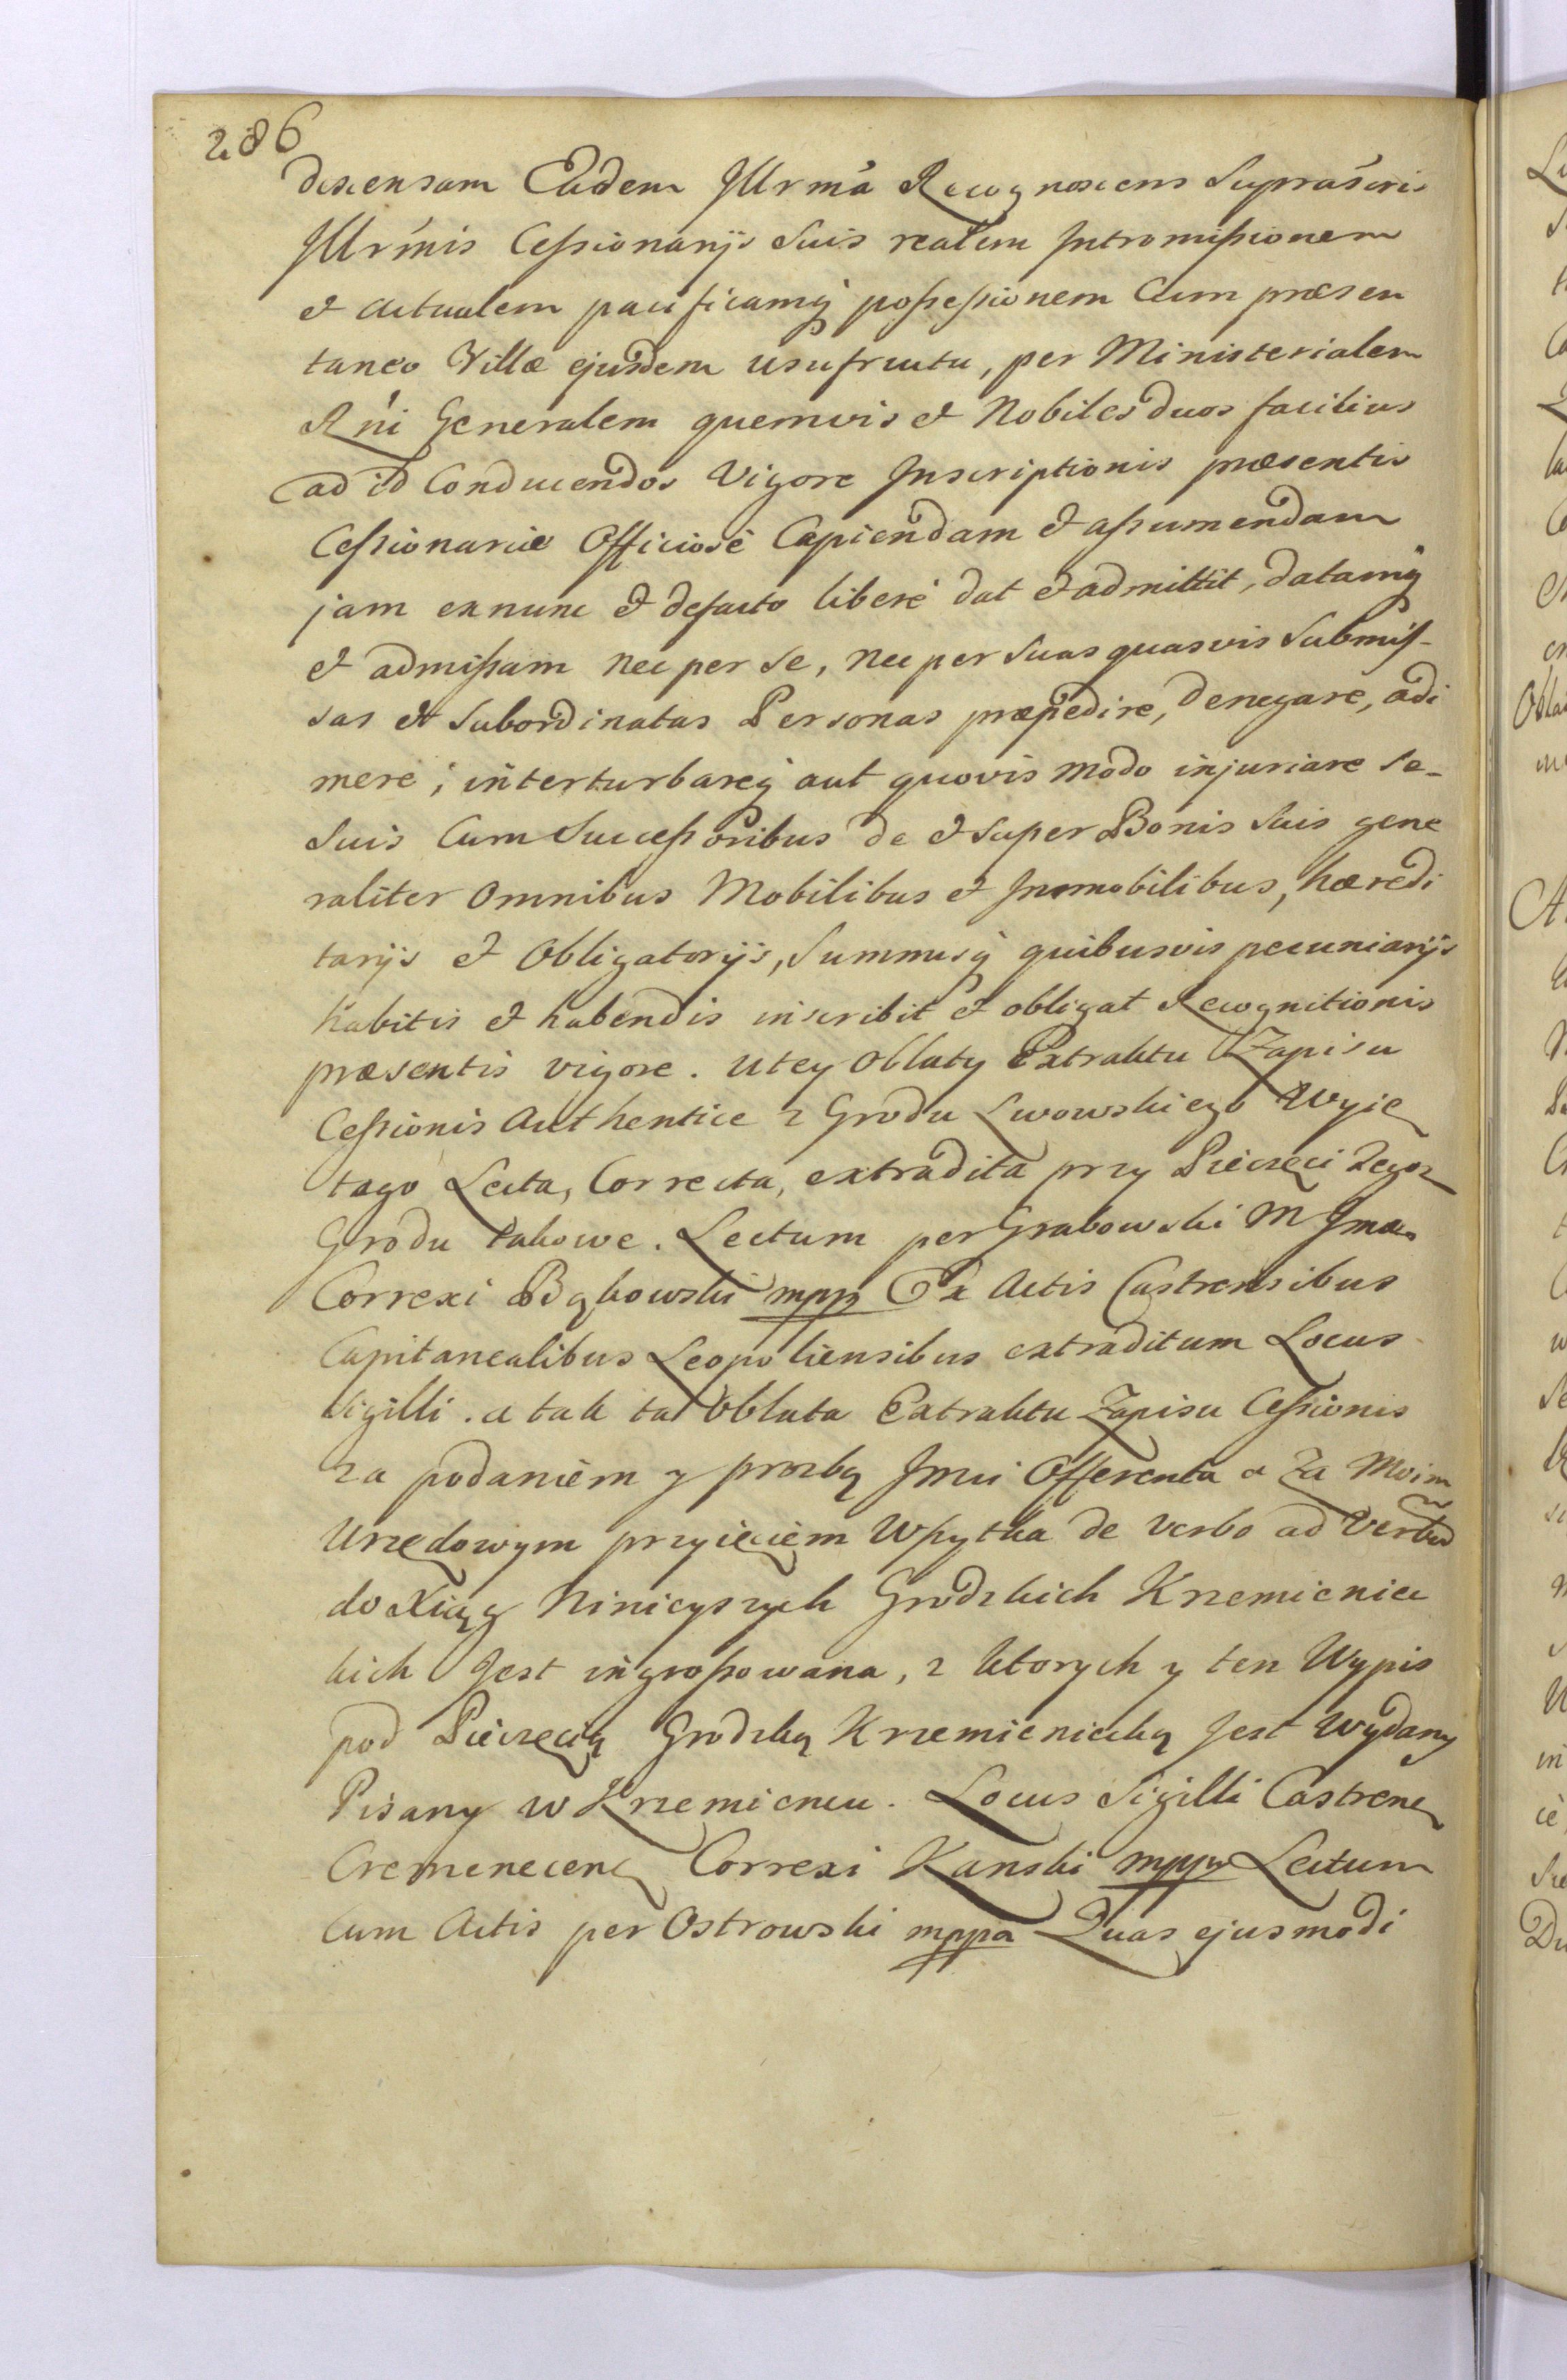 286
descensam Eadem Illrma Recognoscens Suprascris
Illrmis Cessionarijs Suis realem Intromissionem
et actualem pacificamq possessionem Cum præsen
taneo Villæ ejusdem usufructu, per Ministerialem
Rni Generalem quemvis et Nobiles duos facilius
ad id Conducendos Vigore Inscriptionis præsentis
Cessionariæ Officiosè Capiendam et assumendam
jam exnunc et defacto liberè dat et admittit, datamq
et admissam nec per se, nec per suas quasvis Submis-
sas et Subordinatas Personas præpedire, denegare, adi
mere, interturbareq aut quovis modo injuriare se-
suis Cum Successoribus de et super Bonis suis gene
raliter Omnibus Mobilibus et Immobilibus, hæredi
tarijs et Obligatorijs, Summisq quibusvis pecuniarijs
habitis et habendis inscribit et obligat Recognitionis
præsentis vigore. U tey Oblaty Extraktu Zapisu
Cessionis Authentice z Grodu Lwowskiego Wyię
tago Lecta, Correcta, extradita przy Pieczęci Tegoz
Grodu takowe. Lectum per Grabowski M
Correxi Bąkowski mpp Ex Actis Castrensibus
Capitanealibus Leopoliensibus extraditum Locus
Sigilli. a tak ta Oblata Extraktu Zapisu Cessionis
za podaniem y prozbą Jmci Offerenta a za Moim
Urzędowym przyięciem Wszytka de verbo ad Verbũ
do Xiąg Ninieyszych Grodzkich Krzemieniec
kich Jest ingrossowana, z ktorych y ten Wypis
pod Pieczęcią Grodzką Krzemieniecką Jest Wydany
Pisany w Krzemiencu. Locus Sigilli Castrens
Cremenecens Correxi Kanski mppr Lectum
Cum Actis per Ostrowski mppa Quas ejusmodi